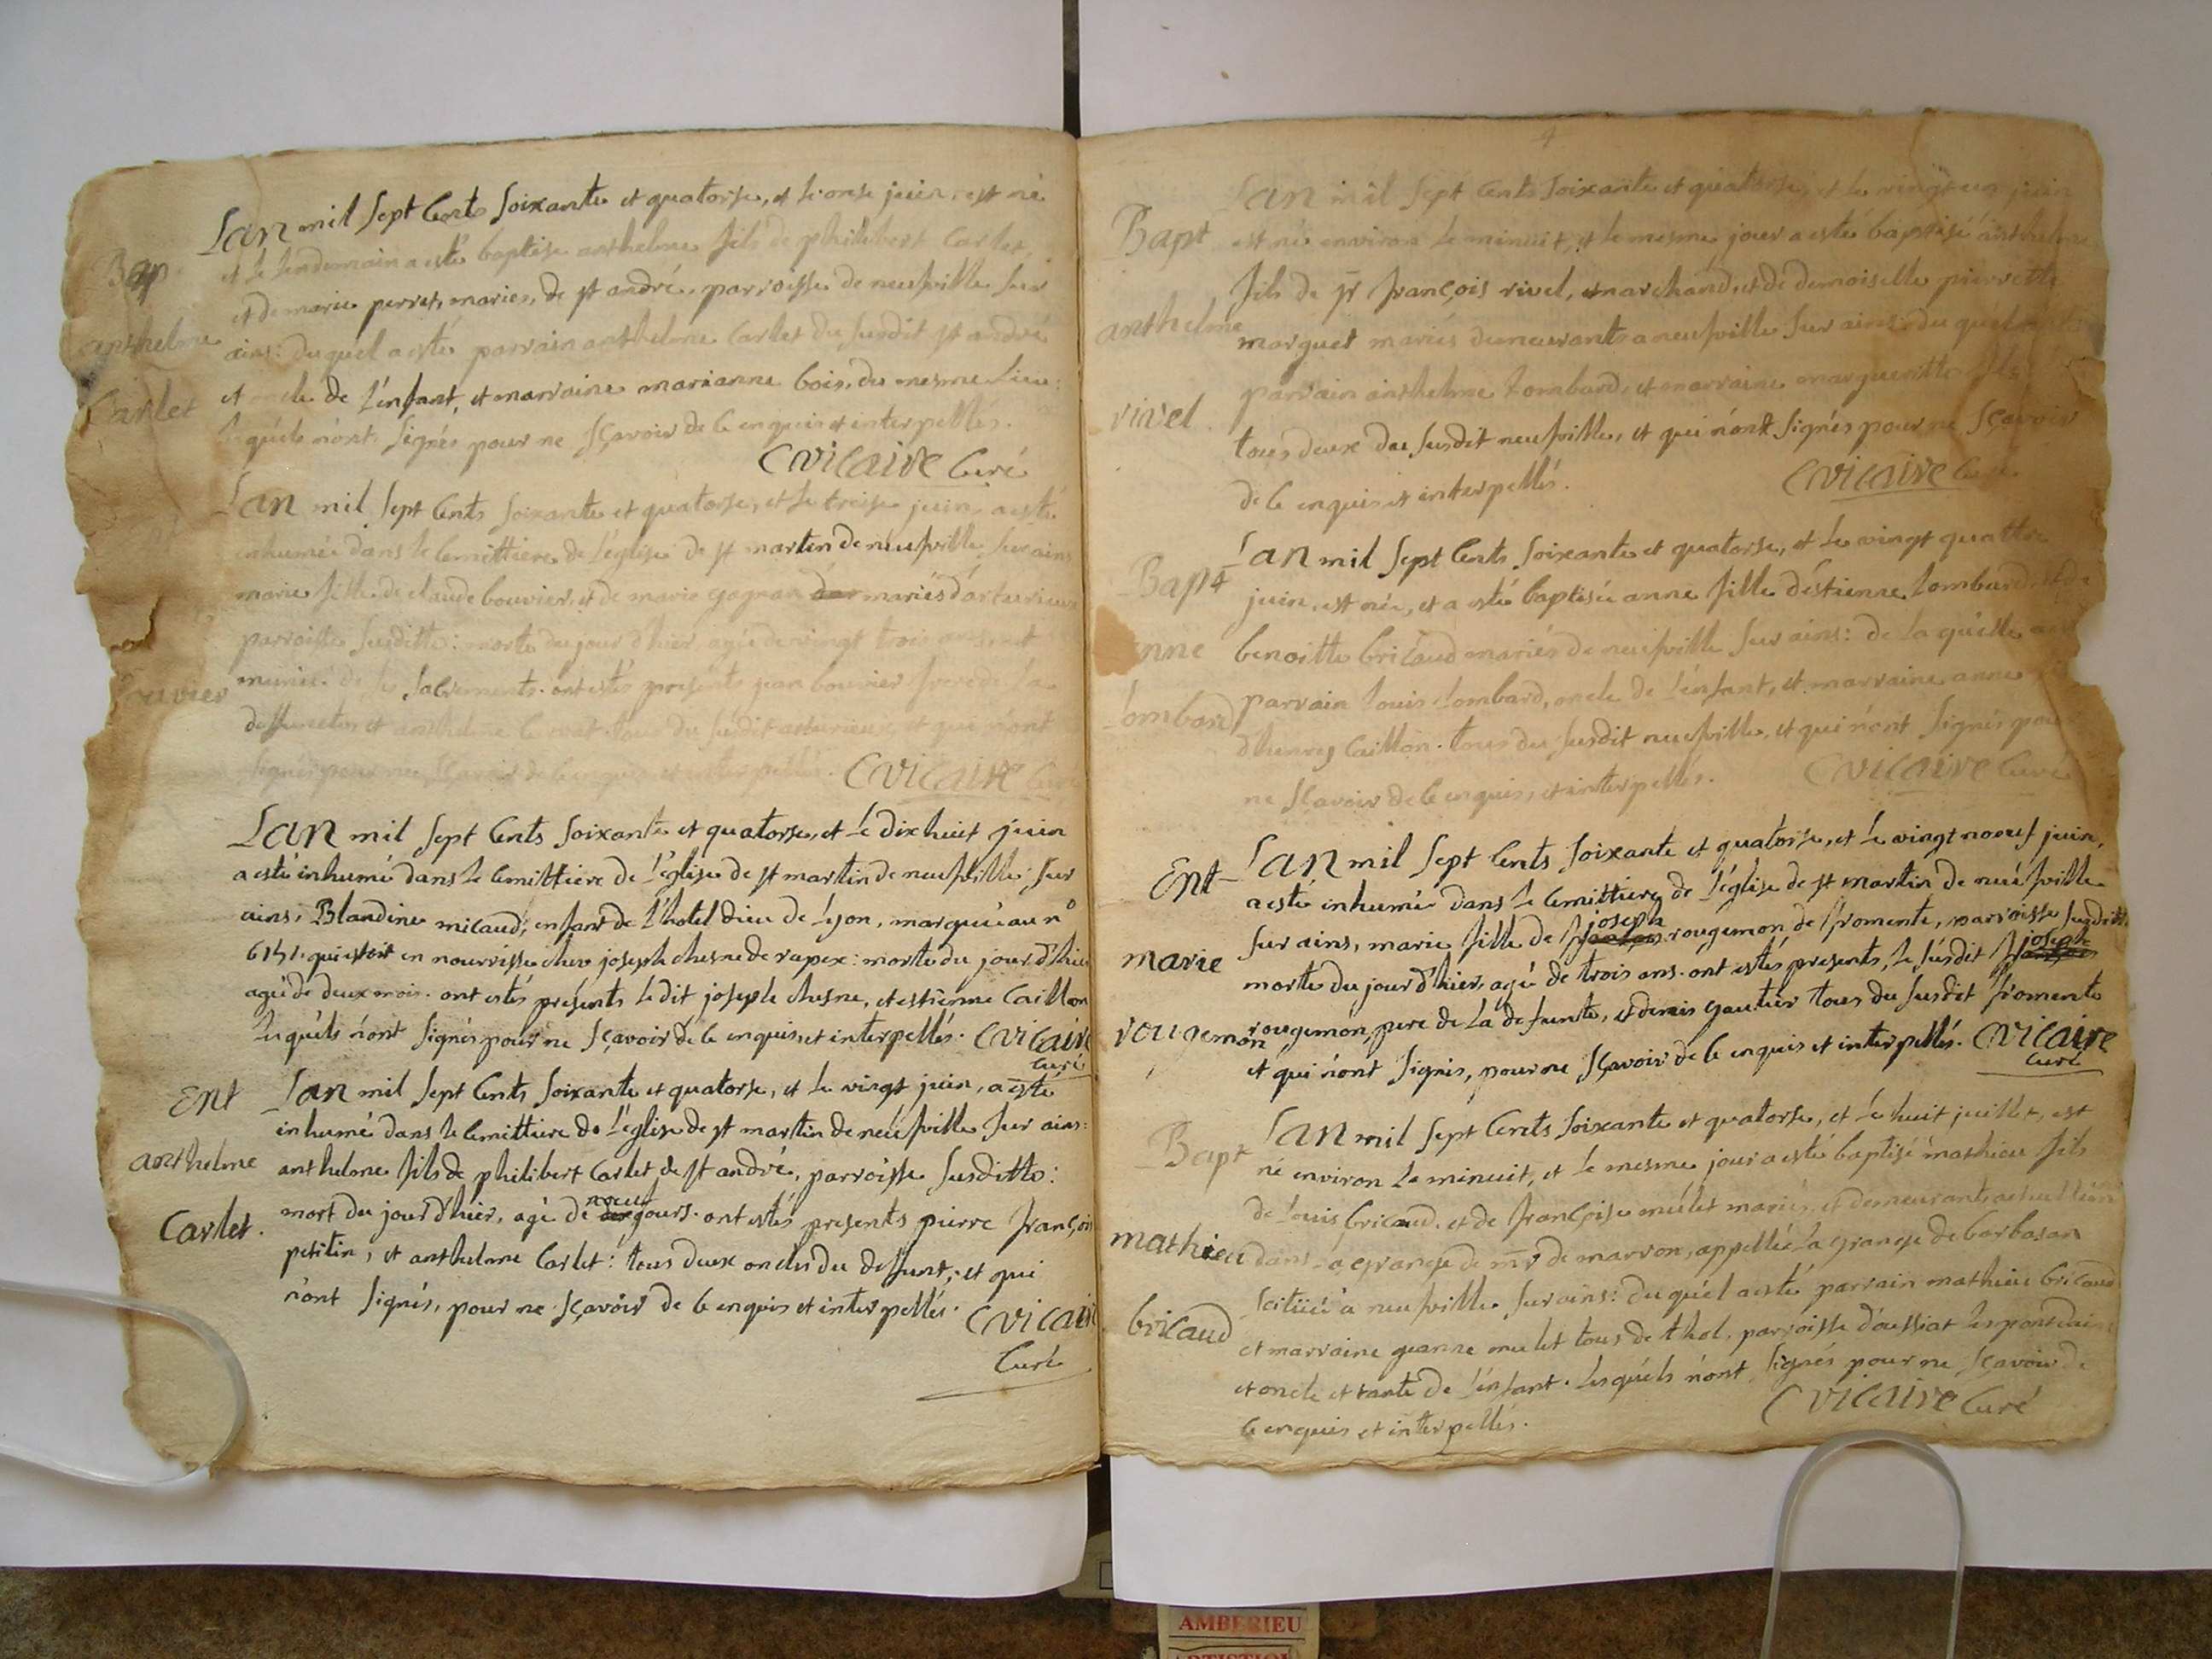 Bap
anthelme
Carlet
Lan mil sept Cents soixante et quatorse, et le onse juin, est né
et le lendemain a esté baptise anthelme fils de philibert Carlet,
et de marie perret, mariés, de st andré, parroisse de neufville sur
ains: duquel a esté parrain anthelme Carlet du susdit st andré
et oncle de l'enfant, et marraine marianne bois, du mesme lieu:
lesquels n'ont signés pour ne sçavoir de ce enquis et interpellés.
C vicaire Curé
bouvier
Lan mil sept Cents soixante et quatorse, et le treise juin, a esté
inhumée dans le Cemittiere de l'église de st martin de neufville sur ains
marie fille de claude bouvier, et de marie gagnan mariés d'arturieux
parroisse susditte: morte du jour d'hier agée de vingt trois ans, et
munie de ses sacrements. ont estés presents jean bouvier frere de la
deffuncte, et anthelme tous du susdit arturieux, et qui n'ont
signés pour ne sçavoir de ce enquis et interpellés. C vicaire Curé
Lan mil sept Cents soixante et quatorse, et le dix huit juin
a esté inhumé dans le Cemittiere de l'église de st martin de neufville sur
ains, Blandine micaud, enfant de l'hotel dieu de Lyon, marquée au n°
6151. qui estoit en nourrisse chez joseph chesne de rapex: morte du jour d'hier
agée de deux mois. ont estés présents le dit joseph chesne, et estienne Caillon
lesquels n'ont signés pour ne sçavoir de ce enquis, et interpellés. C vicaire
Curé
Ent
anthelme
Carlet.
Lan mil sept Cents soixante et quatorse, et le vingt juin, a esté
inhumé dans le Cemittiere de l'église de st martin de neufville sur ains:
anthelme fils de philibert Carlet de st andré, parroisse susditte:
mort du jour d'hier, agé de noeuf jours. ont estés presents pierre françois
petitin, et anthelme Carlet: tous deux oncles du deffunt, et qui
n'ont signés, pour ne sçavoir de ce enquis et interpellés. C vicaire
Curé
4
Bapt
anthelme
rivel.
Lan mil sept Cents soixante et quatorse, et le vingt un juin
est né environ le minuit, et le mesme jour a esté baptisé anthelme
fils de sr françois rivel, marchand, et de demoiselle pierrette
marguet mariés demeurants a neufville sur ains: du quel
parrain anthelme Lombard, et marraine margueritte
tous deux du susdit neufville, et qui n'ont signés pour ne sçavoir
de ce enquis et interpellés. C vicaire Curé
Bapt
anne
Lombard
Lan mil sept Cents soixante et quatorse, et le vingt quattre
juin, est née, et a esté baptisée anne fille d'estienne Lombard, et de
benoitte bricaud mariés de neufville sur ains: de la quelle a
parrain Louis Lombard, oncle de l'enfant, et marraine anne
d'henry Caillon. tous du susdit neufville, et qui n'ont signés pour
ne sçavoir de ce enquis, et interpellés. C vicaire Curé
Ent
marie
rougemon
Lan mil sept Cents soixante et quatorse, et le vingt noeuf juin,
a esté inhumée dans le Cemittiere de l'église de st martin de neufville
sur ains, marie fille de joseph rougemon, de fromente, parroisse susditte
morte du jour d'hier, agé de trois ans. ont estés presents, le susdit joseph
rougemon, pere de la defunte, et denis gautier tous du susdit fromente
et qui n'ont signés, pour ne sçavoir de ce enquis et interpellés. C vicaire
Curé
Bapt
mathieu
bricaud
Lan mil sept Cents soixante et quatorse, et le huit juillet, est
né environ le minuit, et le mesme jour a esté baptisé mathieu fils
de Louis bricaud, et de françoise mulet mariés, et demeurants actuellement
dans la grange de mr de marron, appellée la grange de barbasan
scituée a neufville sur ains: du quel a esté parrain mathieu bricaud
et marraine jeanne mulet tous de thol, parroisse d'aussiat les pont dain
et oncle et tante de l'enfant. lesquels n'ont signés pour ne sçavoir de
ce enquis et interpellés. C vicaire Curé
AMBERIEU